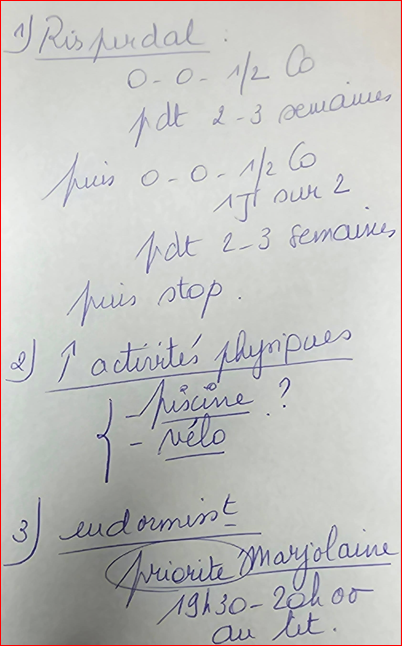 1) Risperdal :
0-0-1/2 Co
pdt 2-3 semaines
puis 0-0-1/2 Co
1J sur 2
pdt 2-3 semaines
puis stop.
2) ↑ activités physiques
{ - piscine ?
- vélo
3) endormisst
priorite Marjolaine
19h30-20h00
au lit.